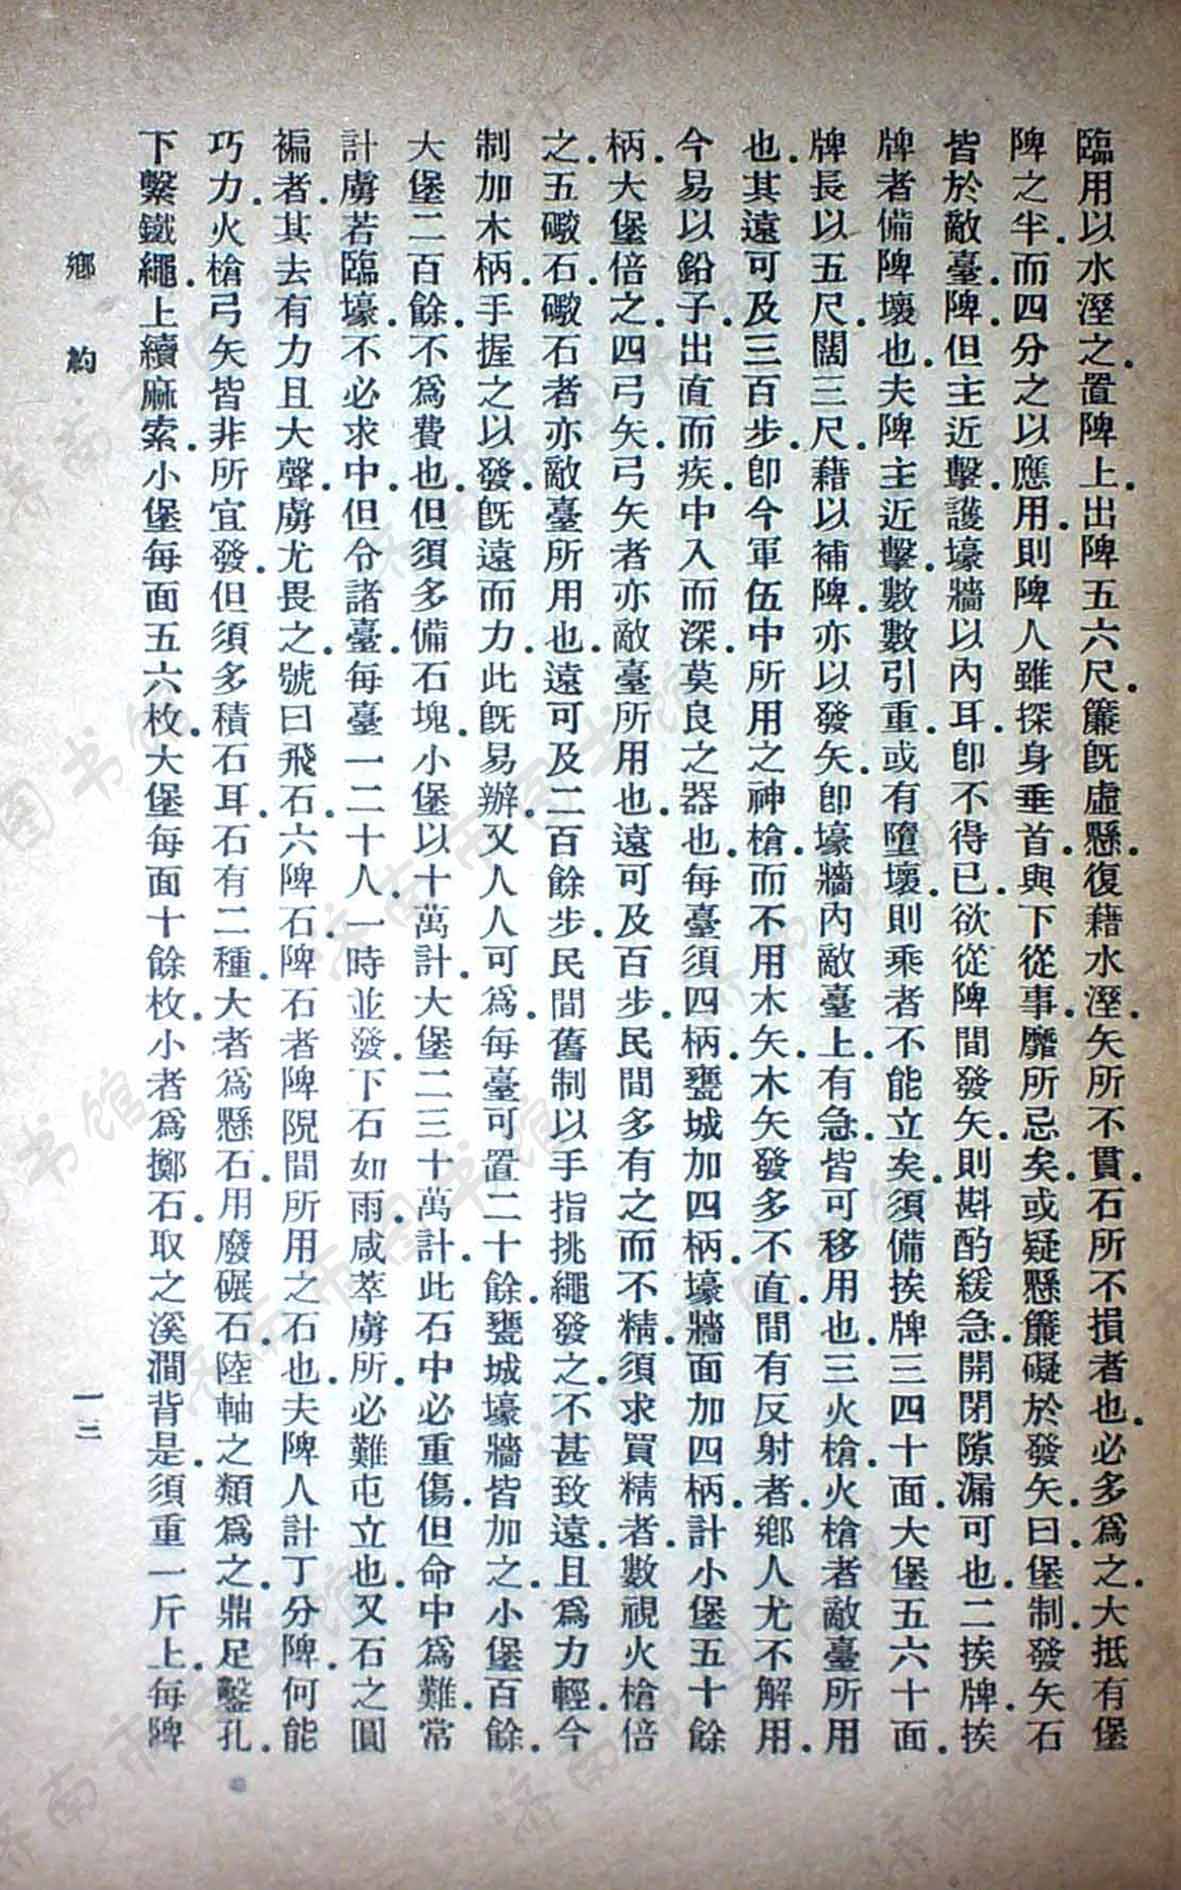 臨用以水溼之.置陴上.出陴五六尺.簾旣虛懸.復藉水溼.矢所不貫.石所不損者也.必多爲之.大抵有堡
陴之半.而四分之以應用.則陴人雖探身垂首.與下從事.靡所忌矣.或疑懸簾礙於發矢.曰.堡制.發矢石
皆於敵臺.陴.但主近擊.護壕牆以內耳.卽不得已.欲從陴間發矢.則斟酌緩急.開閉隙漏可也.二挨牌.挨
牌者備陴壞也.夫陴主近擊.數數引重.或有墮壞.則乘者不能立矣.須備挨牌三四十面.大堡五六十面.
牌長以五尺.闊三尺.藉以補陴.亦以發矢.卽壕牆內敵臺上.有急.皆可移用也.三火槍.火槍者敵臺所用
也.其遠可及三百步.卽今軍伍中所用之神槍.而不用木矢.木矢發多不直.間有反射者.鄉人尤不解用.
今易以鉛子.出直而疾.中入而深.莫良之器也.每臺須四柄.甕城加四柄.壕牆面加四柄.計小堡五十餘
柄.大堡倍之.四弓矢.弓矢者亦敵臺所用也.遠可及百步.民間多有之而不精.須求買精者.數視火槍倍
之.五礮石.礮石者亦敵臺所用也.遠可及二百餘步.民間舊制以手指挑繩發之.不甚致遠.且爲力輕.今
制加木柄.手握之以發.旣遠而力.此旣易辦.又人人可爲.每臺可置二十餘.甕城壕牆皆加之.小堡百餘.
大堡二百餘.不爲費也.但須多備石塊.小堡以十萬計.大堡二三十萬計.此石中必重傷.但命中爲難.常
計虜若臨壕.不必求中.但令諸臺.每臺一二十人.一時並發.下石如雨.咸萃虜所.必難屯立也.又石之圓
褊者.其去有力且大聲.虜尤畏之.號曰飛石.六陴石.陴石者陴隉間所用之石也.夫陴人計丁分陴.何能
巧力.火槍弓矢皆非所宜發.但須多積石耳.石有二種.大者爲懸石.用廢碾石.陸軸之類爲之.鼎足鑿孔.
下繫鐵繩.上續麻索.小堡每面五六枚.大堡每面十餘枚.小者爲擲石.取之溪澗背是.須重一斤上.每陴
鄉約
一三